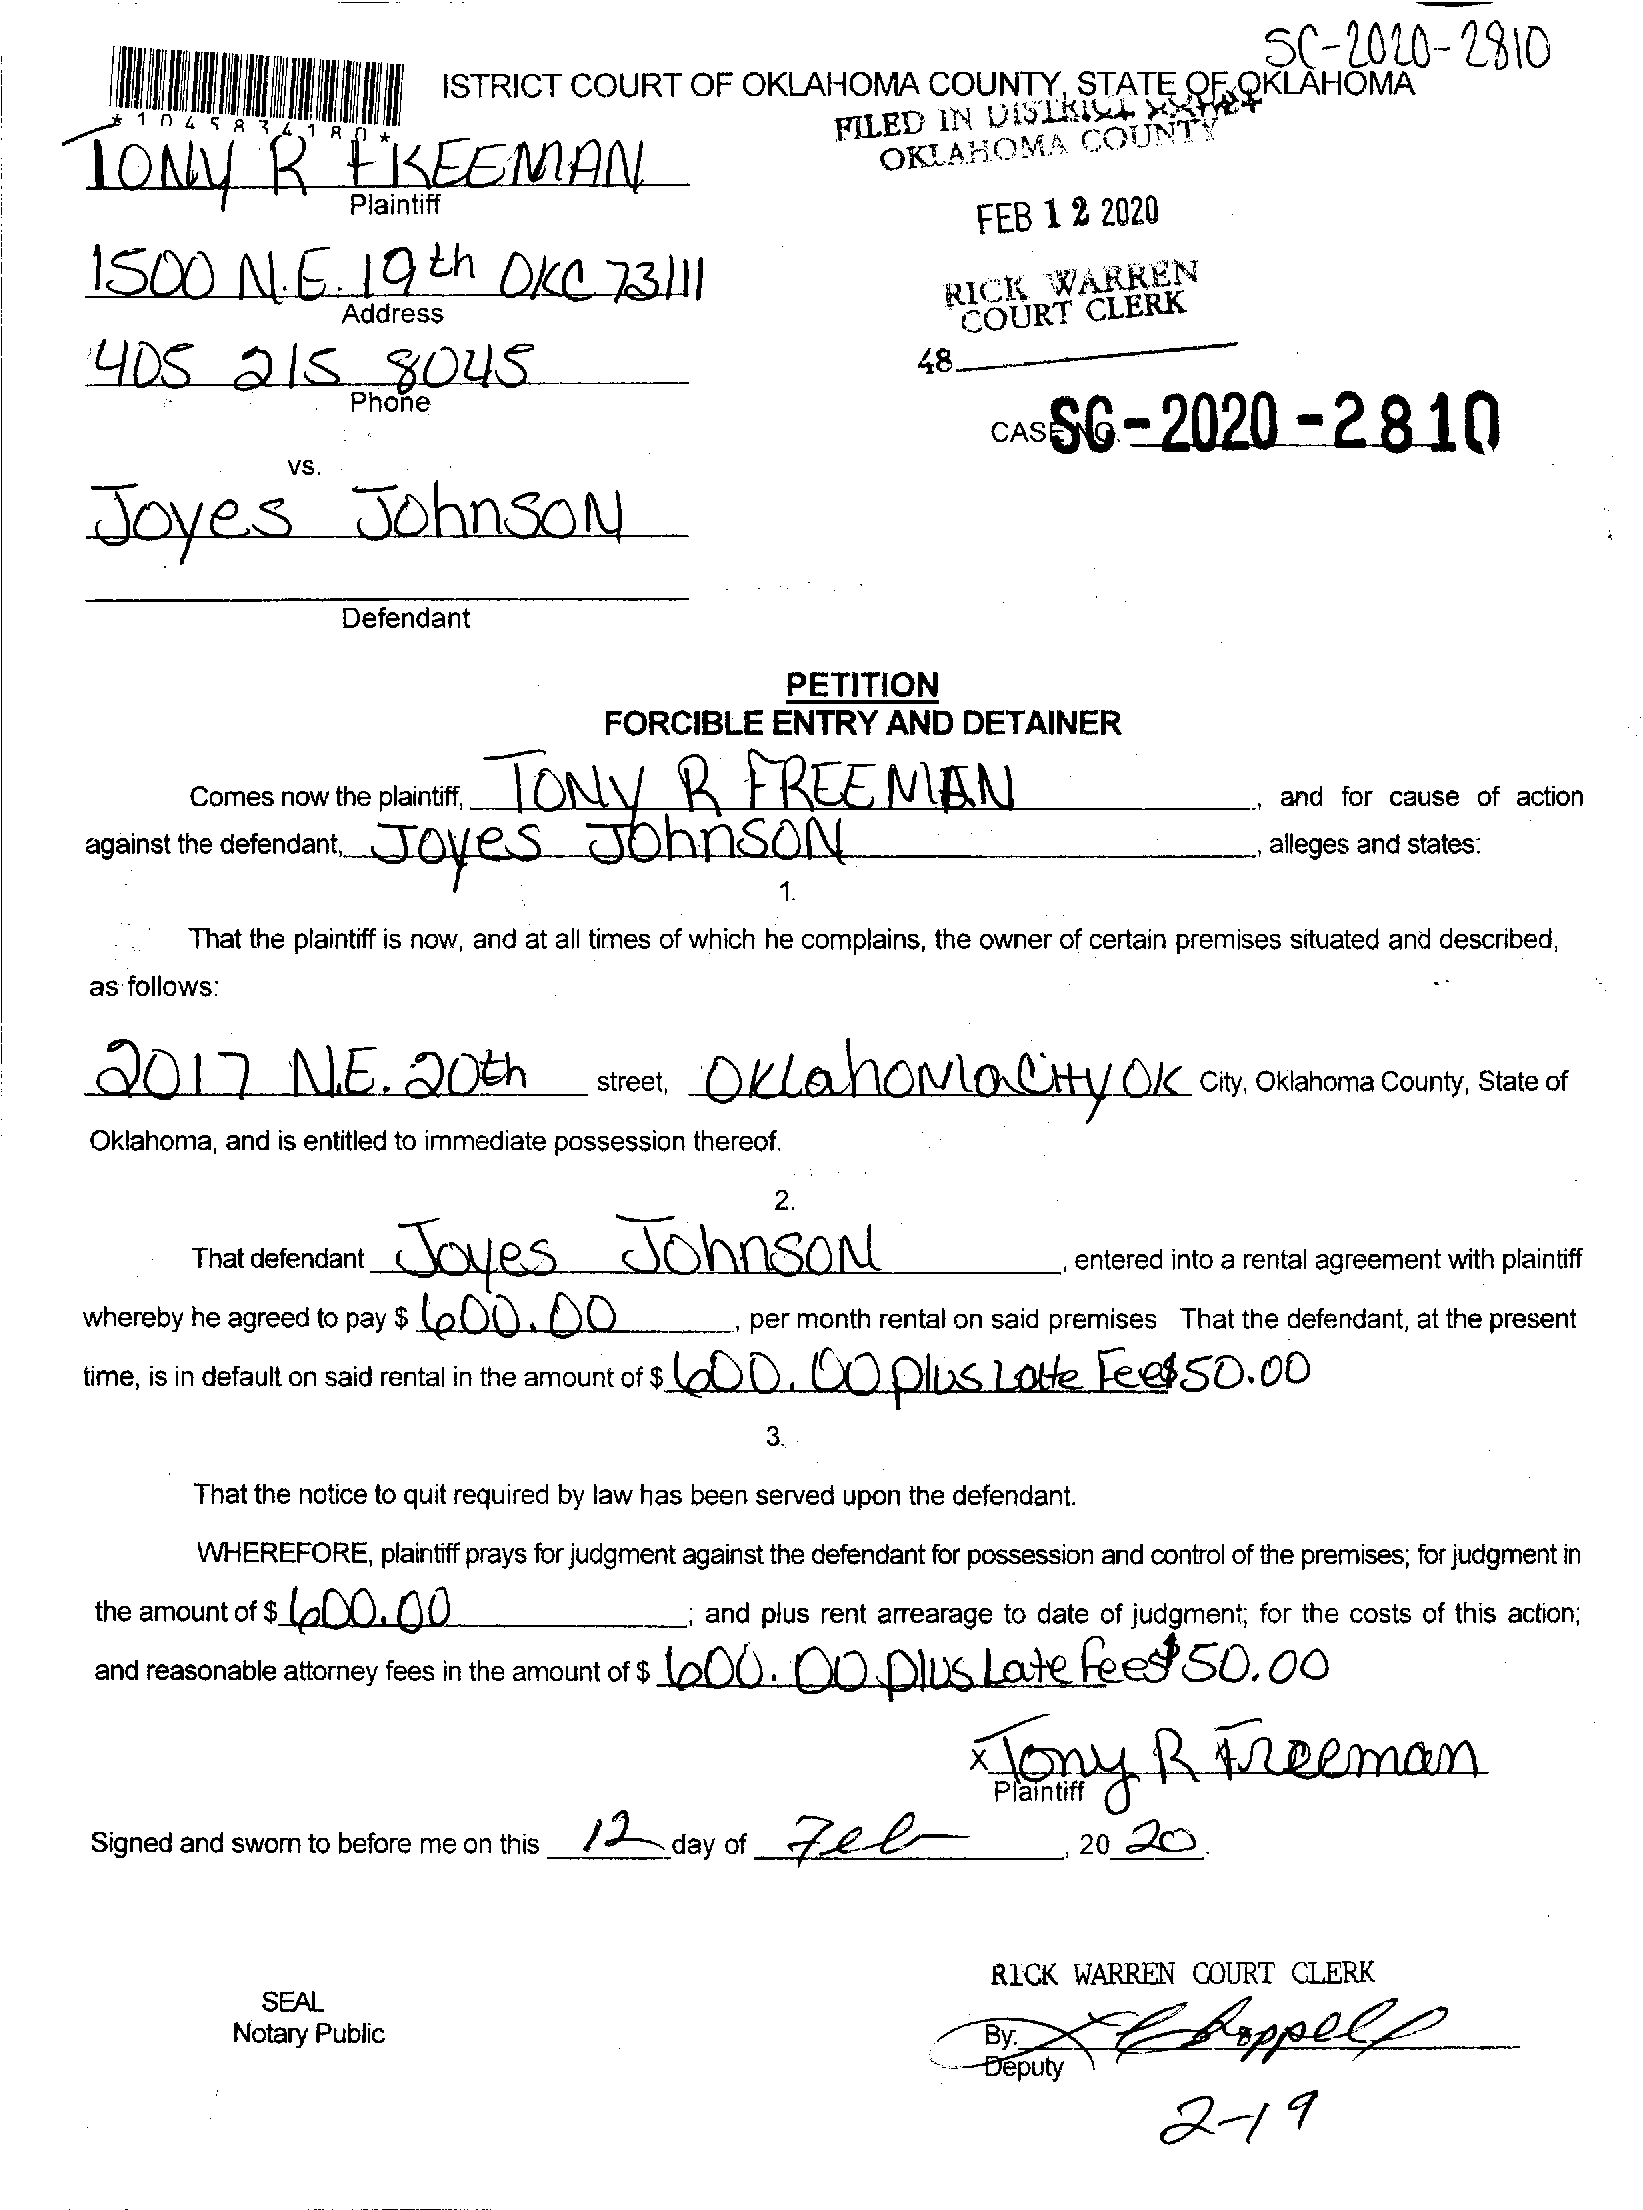 SC-2020-2810
ISTRICT COURT OF OKLAHOMA COUNTY, STATE OF OKLAHOMA
*1045834180*
FILED IN DISTRICT
OKLAHOMA COUNTY
TONY R FREEMAN
Plaintiff
FEB 12 2020
1500 N.E. 19th OKC 73111
Address
RICK WARREN
COURT CLERK
405 215 8045
Phone
48
CASE NO. SC-2020-2810
vs.
Joyes Johnson
Defendant
PETITION
FORCIBLE ENTRY AND DETAINER
Comes now the plaintiff, TONY R FREEMAN, and for cause of action
against the defendant, Joyes Johnson, alleges and states:
1.
That the plaintiff is now, and at all times of which he complains, the owner of certain premises situated and described,
as follows:
2017 N.E. 20th street, Oklahoma City OK City, Oklahoma County, State of
Oklahoma, and is entitled to immediate possession thereof.
2.
That defendant Joyes Johnson, entered into a rental agreement with plaintiff
whereby he agreed to pay $ 600.00, per month rental on said premises That the defendant, at the present
time, is in default on said rental in the amount of $ 600.00 plus Late Fee $50.00
3.
That the notice to quit required by law has been served upon the defendant.
WHEREFORE, plaintiff prays for judgment against the defendant for possession and control of the premises; for judgment in
the amount of $ 600.00; and plus rent arrearage to date of judgment; for the costs of this action;
and reasonable attorney fees in the amount of $ 600.00 plus Late fees $50.00
x Tony R Freeman
Plaintiff
Signed and sworn to before me on this 12 day of Feb, 20 20.
RICK WARREN COURT CLERK
SEAL
Notary Public
By:
Deputy
2-19